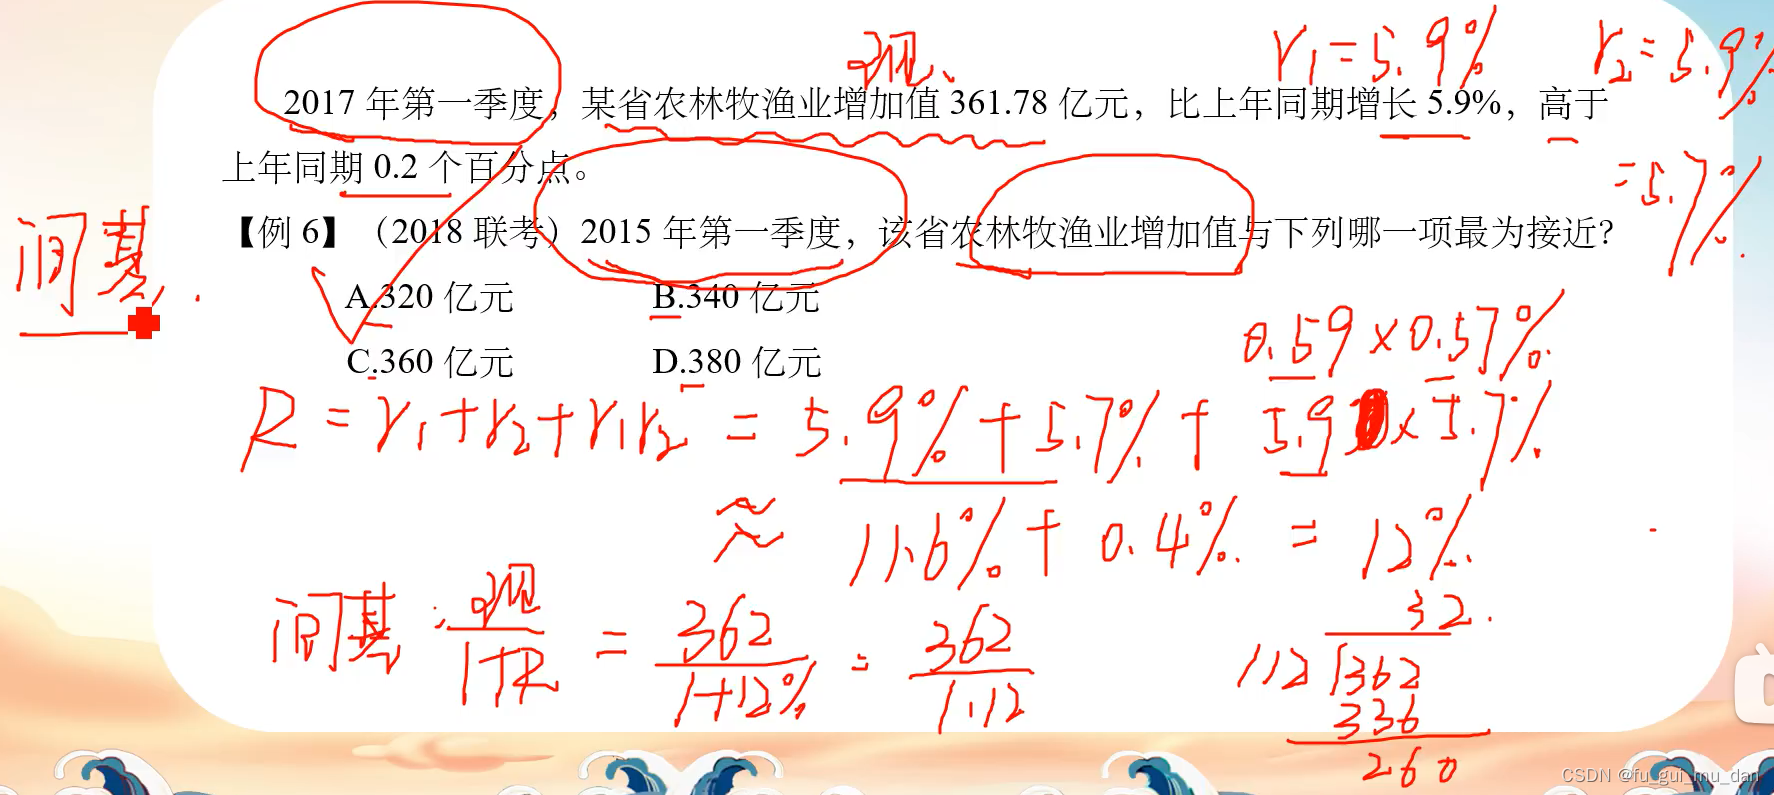 现
r₁=5.9% r₂=5.9%
2017 年第一季度，某省农林牧渔业增加值 361.78 亿元，比上年同期增长 5.9%，高于
上年同期 0.2 个百分点。
=5.7%
间基
【例 6】（2018 联考）2015 年第一季度，该省农林牧渔业增加值与下列哪一项最为接近？
A.320 亿元 B.340 亿元
C.360 亿元 D.380 亿元
0.59×0.57%
R=r₁+r₂+r₁r₂=5.9%+5.7%+5.9×5.7%
≈11.6%+0.4%=12%
间基:现/1+R=362/1+12%=362/1.12
32.
112 362
336
260
CSDN @fu_gui_mu_dan